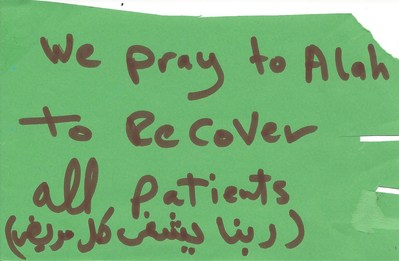 We pray to Alah
to Recover
all patients
(ربنا يشفى كل مريض)